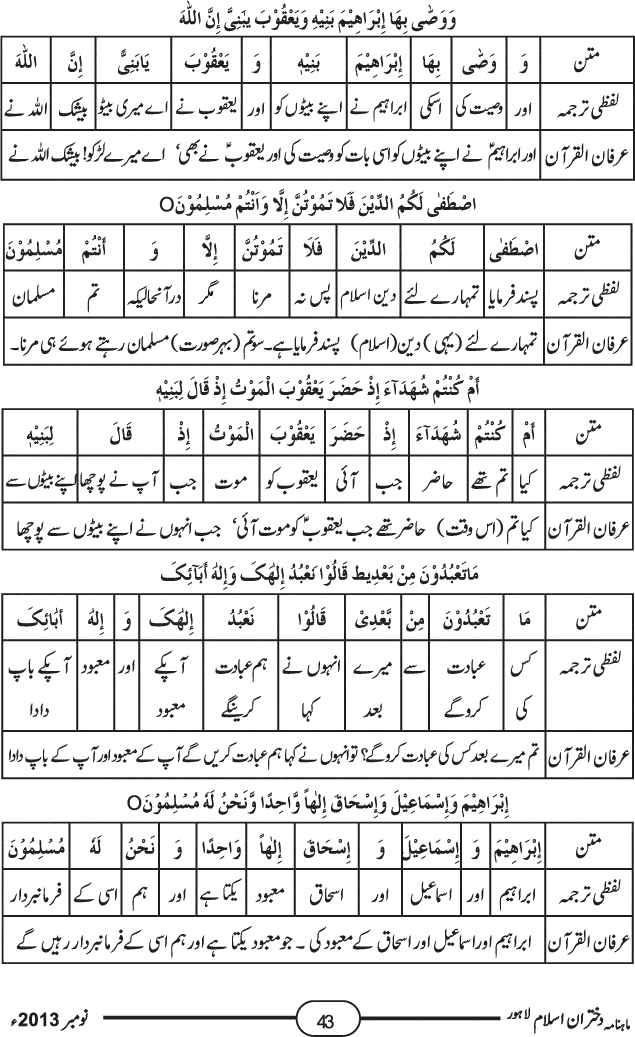 وَوَصّٰی بِهَا إِبْرَاهِيْمَ بَنِيْهِ وَيَعْقُوْبَ يٰبَنِیَّ إِنَّ اللّٰهَ
متن وَ وَصّٰی بِهَا إِبْرَاهِيْمَ بَنِيْهِ وَ يَعْقُوْبَ يَابَنِیَّ إِنَّ اللّٰهَ
لفظی ترجمہ اور وصیت کی اسکی ابراہیم نے اپنے بیٹوں کو اور یعقوب نے اے میری بیٹو بیشک اللہ نے
عرفان القرآن اور ابراہیمؑ نے اپنے بیٹوں کو اسی بات کو وصیت کی اور یعقوبؑ نے بھی‘ اے میرے لڑکو! بیشک اللہ نے
اصْطَفٰی لَکُمُ الدِّيْنَ فَلَا تَمُوْتُنَّ إِلَّا وَاَنْتُمْ مُسْلِمُوْنَO
متن اصْطَفٰی لَکُمُ الدِّيْنَ فَلَا تَمُوْتُنَّ إِلَّا وَ أَنْتُمْ مُسْلِمُوْنَ
لفظی ترجمہ پسند فرمایا تمہارے لئے دین اسلام پس نہ مرنا مگر درآنحالیکہ تم مسلمان
عرفان القرآن تمہارے لئے (یہی) دین (اسلام) پسند فرمایا ہے۔ سو تم (بہر صورت) مسلمان رہتے ہوئے ہی مرنا۔
أَمْ کُنْتُمْ شُهَدَآءَ إِذْ حَضَرَ يَعْقُوْبَ الْمَوْتُ إِذْ قَالَ لِبَنِيْهِ
متن أَمْ کُنْتُمْ شُهَدَآءَ إِذْ حَضَرَ يَعْقُوْبَ الْمَوْتُ إِذْ قَالَ لِبَنِيْهِ
لفظی ترجمہ کیا تم تھے حاضر جب آئی یعقوب کو موت جب آپ نے پوچھا اپنے بیٹوں سے
عرفان القرآن کیا تم (اس وقت) حاضر تھے جب یعقوبؑ کو موت آئی‘ جب انہوں نے اپنے بیٹوں سے پوچھا
مَاتَعْبُدُوْنَ مِنْ بَعْدِيط قَالُوْا نَعْبُدُ إِلٰهَکَ وَإِلٰهَ أٰبَآئِکَ
متن مَا تَعْبُدُوْنَ مِنْ بَّعْدِیْ قَالُوْا نَعْبُدُ إِلٰهَکَ وَ إِلٰهَ أٰبَائِکَ
لفظی ترجمہ کس کی عبادت کروگے سے میرے بعد انہوں نے کہا ہم عبادت کرینگے آپکے معبود اور معبود آپکے باپ دادا
عرفان القرآن تم میرے بعد کس کی عبادت کرو گے؟ تو انہوں نے کہا ہم عبادت کریں گے آپ کے معبود اور آپ کے باپ دادا
إِبْرَاهِيْمَ وَإِسْمَاعِيْلَ وَإِسْحَاقَ إِلٰهاً وَّاحِدًا وَّنَحْنُ لَهٗ مُسْلِمُوْنَO
متن إِبْرَاهِيْمَ وَ إِسْمَاعِيْلَ وَ إِسْحَاقَ إِلٰهاً وَاحِدًا وَ نَحْنُ لَهٗ مُسْلِمُوْنَ
لفظی ترجمہ ابراہیم اور اسماعیل اور اسحاق معبود یکتا ہے اور ہم اسی کے فرمانبردار
عرفان القرآن ابراہیم اور اسماعیل اور اسحاق کے معبود کی ۔ جو معبود یکتا ہے اور ہم اسی کے فرمانبردار رہیں گے
ماہنامہ دختران اسلام لاہور 43 نومبر 2013ء